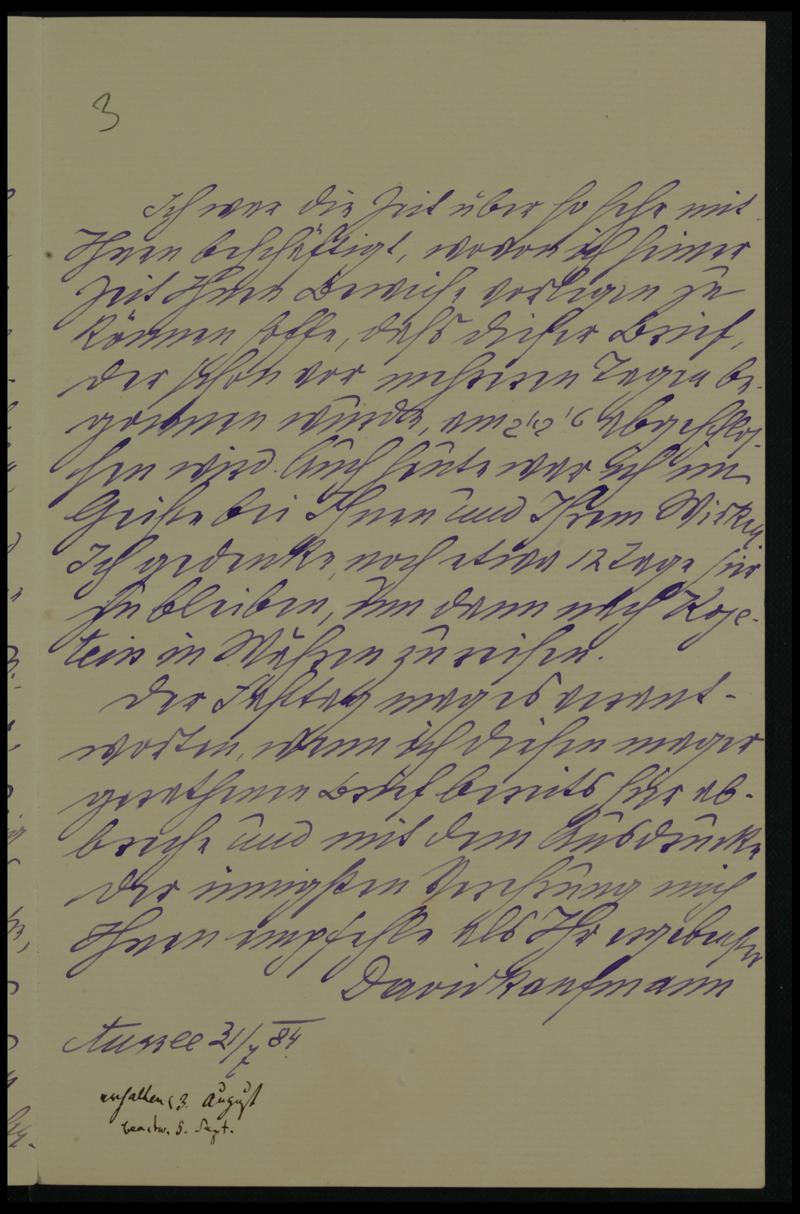 3
Ich war die Zeit über so sehr mit
Ihnen beschäftigt, wovon ich seiner
Zeit Ihnen Beweise vorlegen zu
können hoffe, dass dieser Brief,
der schon vor mehreren Tagen be-
gonnen wurde, am abgeschlos-
sen wird. Auch heute war ich im
Geiste bei Ihnen und Ihrem Wirken
Ich gedenke, noch etwa 12 Tage hier
zu bleiben, um dann nach Koje-
tein in Mähren zu reisen.
Der Fasttag mag es verant-
worten, wenn ich diesen mager
gerathenen Brief bereits hier ab-
breche und mit dem Ausdrucke
der innigsten Verehrung mich
Ihnen empfehle als Ihr ergebenster
David Kaufmann
Aussee 31/7 84.
erhalten 3. August
beantw. 5. Sept.